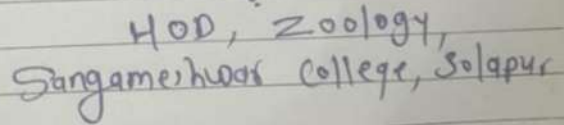 HOD, Zoology,
Sangameshwar College, Solapur